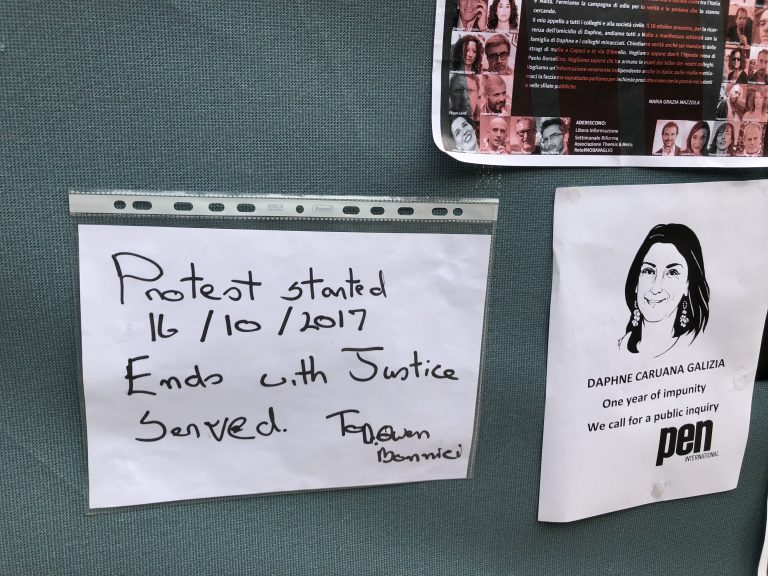 e Malta. Fermiamo la campagna di odio per la verità e le persone che la stanno
cercando.
Il mio appello a tutti i colleghi e alla società civile. Il 16 ottobre prossimo, per la ricor-
renza dell'omicidio di Daphne, andiamo tutti a Malta a manifestare schierati con la
famiglia di Daphne e i colleghi minacciati. Chiediamo verità anche sui mandanti delle
stragi di mafia a Capaci e in via D'Amelio. Vogliamo sapere dov'è l'agenda rossa di
Paolo Borsellino. Vogliamo sapere chi ha armato le mani dei killer dei nostri colleghi.
Vogliamo un'informazione veramente indipendente anche in Italia: sulle mafie
e non con le parole nei salotti
o nelle sfilate pubbliche.
MARIA GRAZIA MAZZOLA
ADERISCONO:
Libera Informazione
Settimanale Riforma
Associazione Themis & Metis
Rete#NOBAVAGLIO
Protest started
16/10/2017
Ends with Justice
Served. To D. Owen
Bonnici
DAPHNE CARUANA GALIZIA
One year of impunity
We call for a public inquiry
pen
INTERNATIONAL